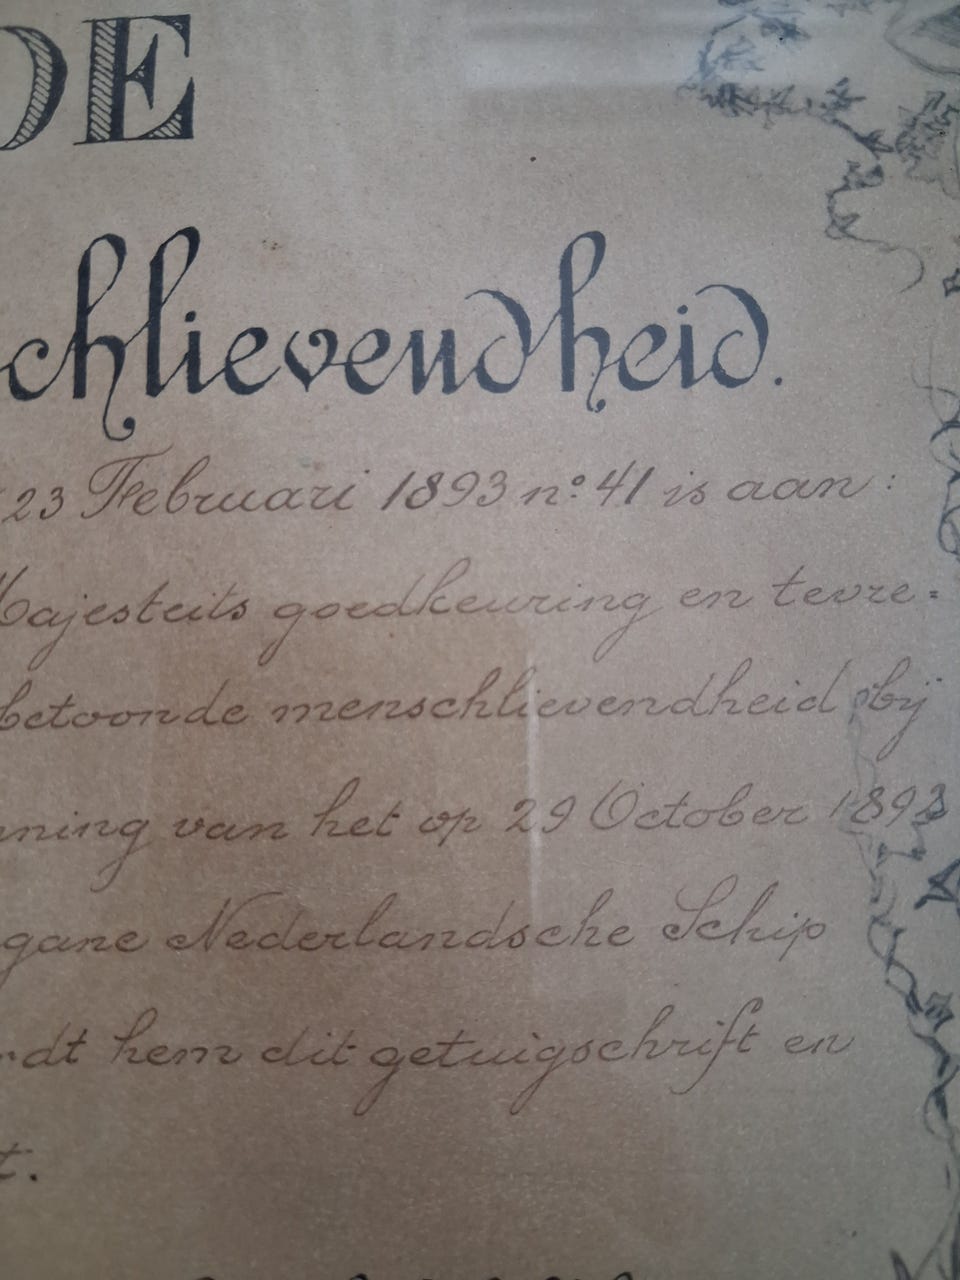 DE
chlievendheid.
23 Februari 1893 no. 41 is aan:
Majesteits goedkeuring en tevre=
betoonde menschlievendheid bij
nning van het op 29 October 1893
gane Nederlandsche Schip
rdt hem dit getuigschrift en
t.